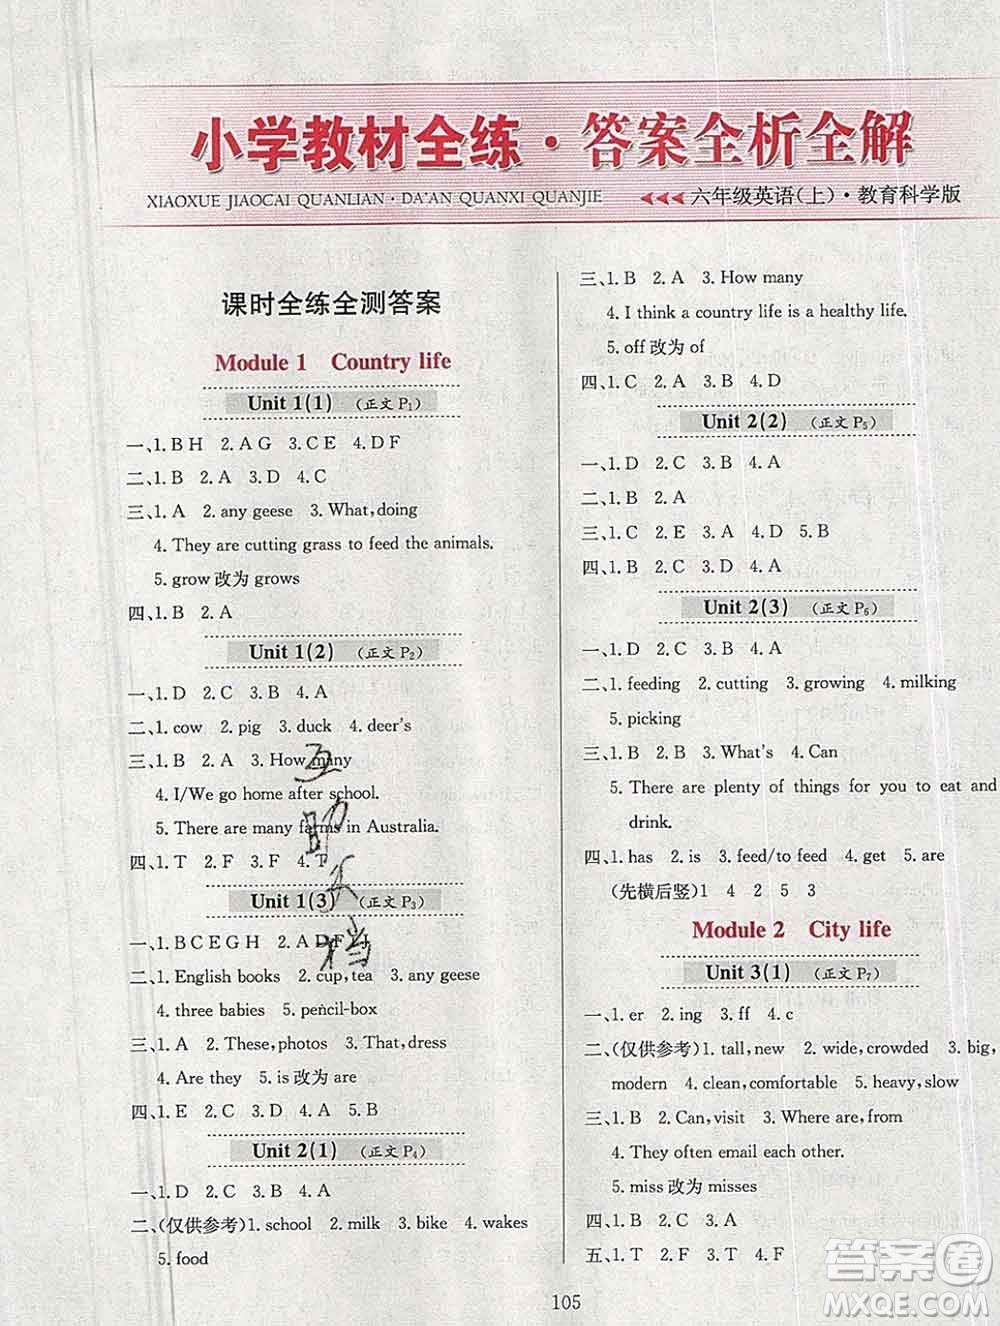 小学教材全练·答案全析全解
XIAOXUE JIAOCAI QUANLIAN · DA'AN QUANXI QUANJIE
六年级英语(上)·教育科学版
课时全练全测答案
Module 1 Country life
Unit 1(1) (正文 P1)
一、1. B H 2. A G 3. C E 4. D F
二、1. B 2. A 3. D 4. C
三、1. A 2. any geese 3. What, doing
4. They are cutting grass to feed the animals.
5. grow 改为 grows
四、1. B 2. A
Unit 1(2) (正文 P2)
一、1. D 2. C 3. B 4. A
二、1. cow 2. pig 3. duck 4. deer's
三、1. B 2. A 3. How many
4. I/We go home after school.
5. There are many farms in Australia.
四、1. T 2. F 3. F 4. T
Unit 1(3) (正文 P3)
一、1. B C E G H 2. A D F I J
二、1. English books 2. cup, tea 3. any geese
4. three babies 5. pencil-box
三、1. A 2. These, photos 3. That, dress
4. Are they 5. is 改为 are
四、1. E 2. C 3. D 4. A 5. B
Unit 2(1) (正文 P4)
一、1. D 2. C 3. B 4. A
二、(仅供参考) 1. school 2. milk 3. bike 4. wakes
5. food
三、1. B 2. A 3. How many
4. I think a country life is a healthy life.
5. off 改为 of
四、1. C 2. A 3. B 4. D
Unit 2(2) (正文 P5)
一、1. D 2. C 3. B 4. A
二、1. B 2. A
三、1. C 2. E 3. A 4. D 5. B
四、1. B 2. C 3. D 4. A
Unit 2(3) (正文 P6)
一、1. D 2. C 3. B 4. A
二、1. feeding 2. cutting 3. growing 4. milking
5. picking
三、1. B 2. B 3. What's 4. Can
5. There are plenty of things for you to eat and
drink.
四、1. has 2. is 3. feed/to feed 4. get 5. are
(先横后竖) 1 4 2 5 3
Module 2 City life
Unit 3(1) (正文 P7)
一、1. er 2. ing 3. ff 4. c
二、(仅供参考) 1. tall, new 2. wide, crowded 3. big,
modern 4. clean, comfortable 5. heavy, slow
三、1. B 2. Can, visit 3. Where are, from
4. They often email each other.
5. miss 改为 misses
四、1. B 2. C 3. A
五、1. T 2. F 3. T 4. F 5. T
105
互助文档
答案圈
MXQE.COM